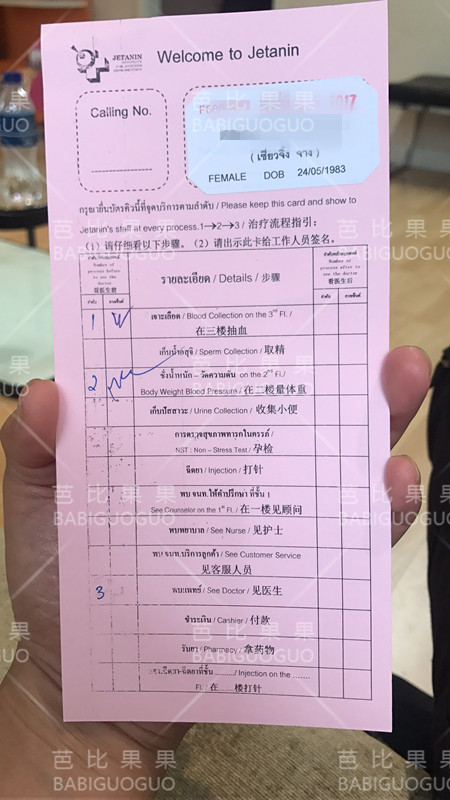 JETANIN
Welcome to Jetanin
Calling No.
2017
( เซียวจิ้ง จาง )
FEMALE DOB 24/05/1983
กรุณายื่นบัตรคิวนี้ที่จุดบริการตามลำดับ / Please keep this card and show to
Jetanin's staff at every process.1→2→3 / 治疗流程指引:
(1) 请仔细看以下步骤。(2) 请出示此卡给工作人员签名。
Number of process before to see the doctor
看医生前
รายละเอียด / Details / 步骤
Number of process after to see the doctor
看医生后
ลำดับ ลายเซ็นต์
ลำดับ ลายเซ็นต์
1
เจาะเลือด / Blood Collection on the 3rd Fl. /
在三楼抽血
เก็บน้ำอสุจิ / Sperm Collection / 取精
2
ชั่งน้ำหนัก – วัดความดัน on the 2nd FL/
Body Weight Blood Pressure / 在二楼量体重
เก็บปัสสาวะ / Urine Collection / 收集小便
การตรวจสุขภาพทารกในครรภ์ /
NST : Non – Stress Test / 孕检
ฉีดยา / Injection / 打针
พบ จนท.ให้คำปรึกษา ที่ชั้น 1
See Counselor on the 1st FL / 在一楼见顾问
พบพยาบาล / See Nurse / 见护士
พบ จนท.บริการลูกค้า / See Customer Service
见客服人员
3
พบแพทย์ / See Doctor / 见医生
ชำระเงิน / Cashier / 付款
รับยา / Pharmacy / 拿药物
ฉีดยาที่ชั้น ....... / Injection on the .......
FL / 在 楼打针
芭比果果
BABIGUOGUO